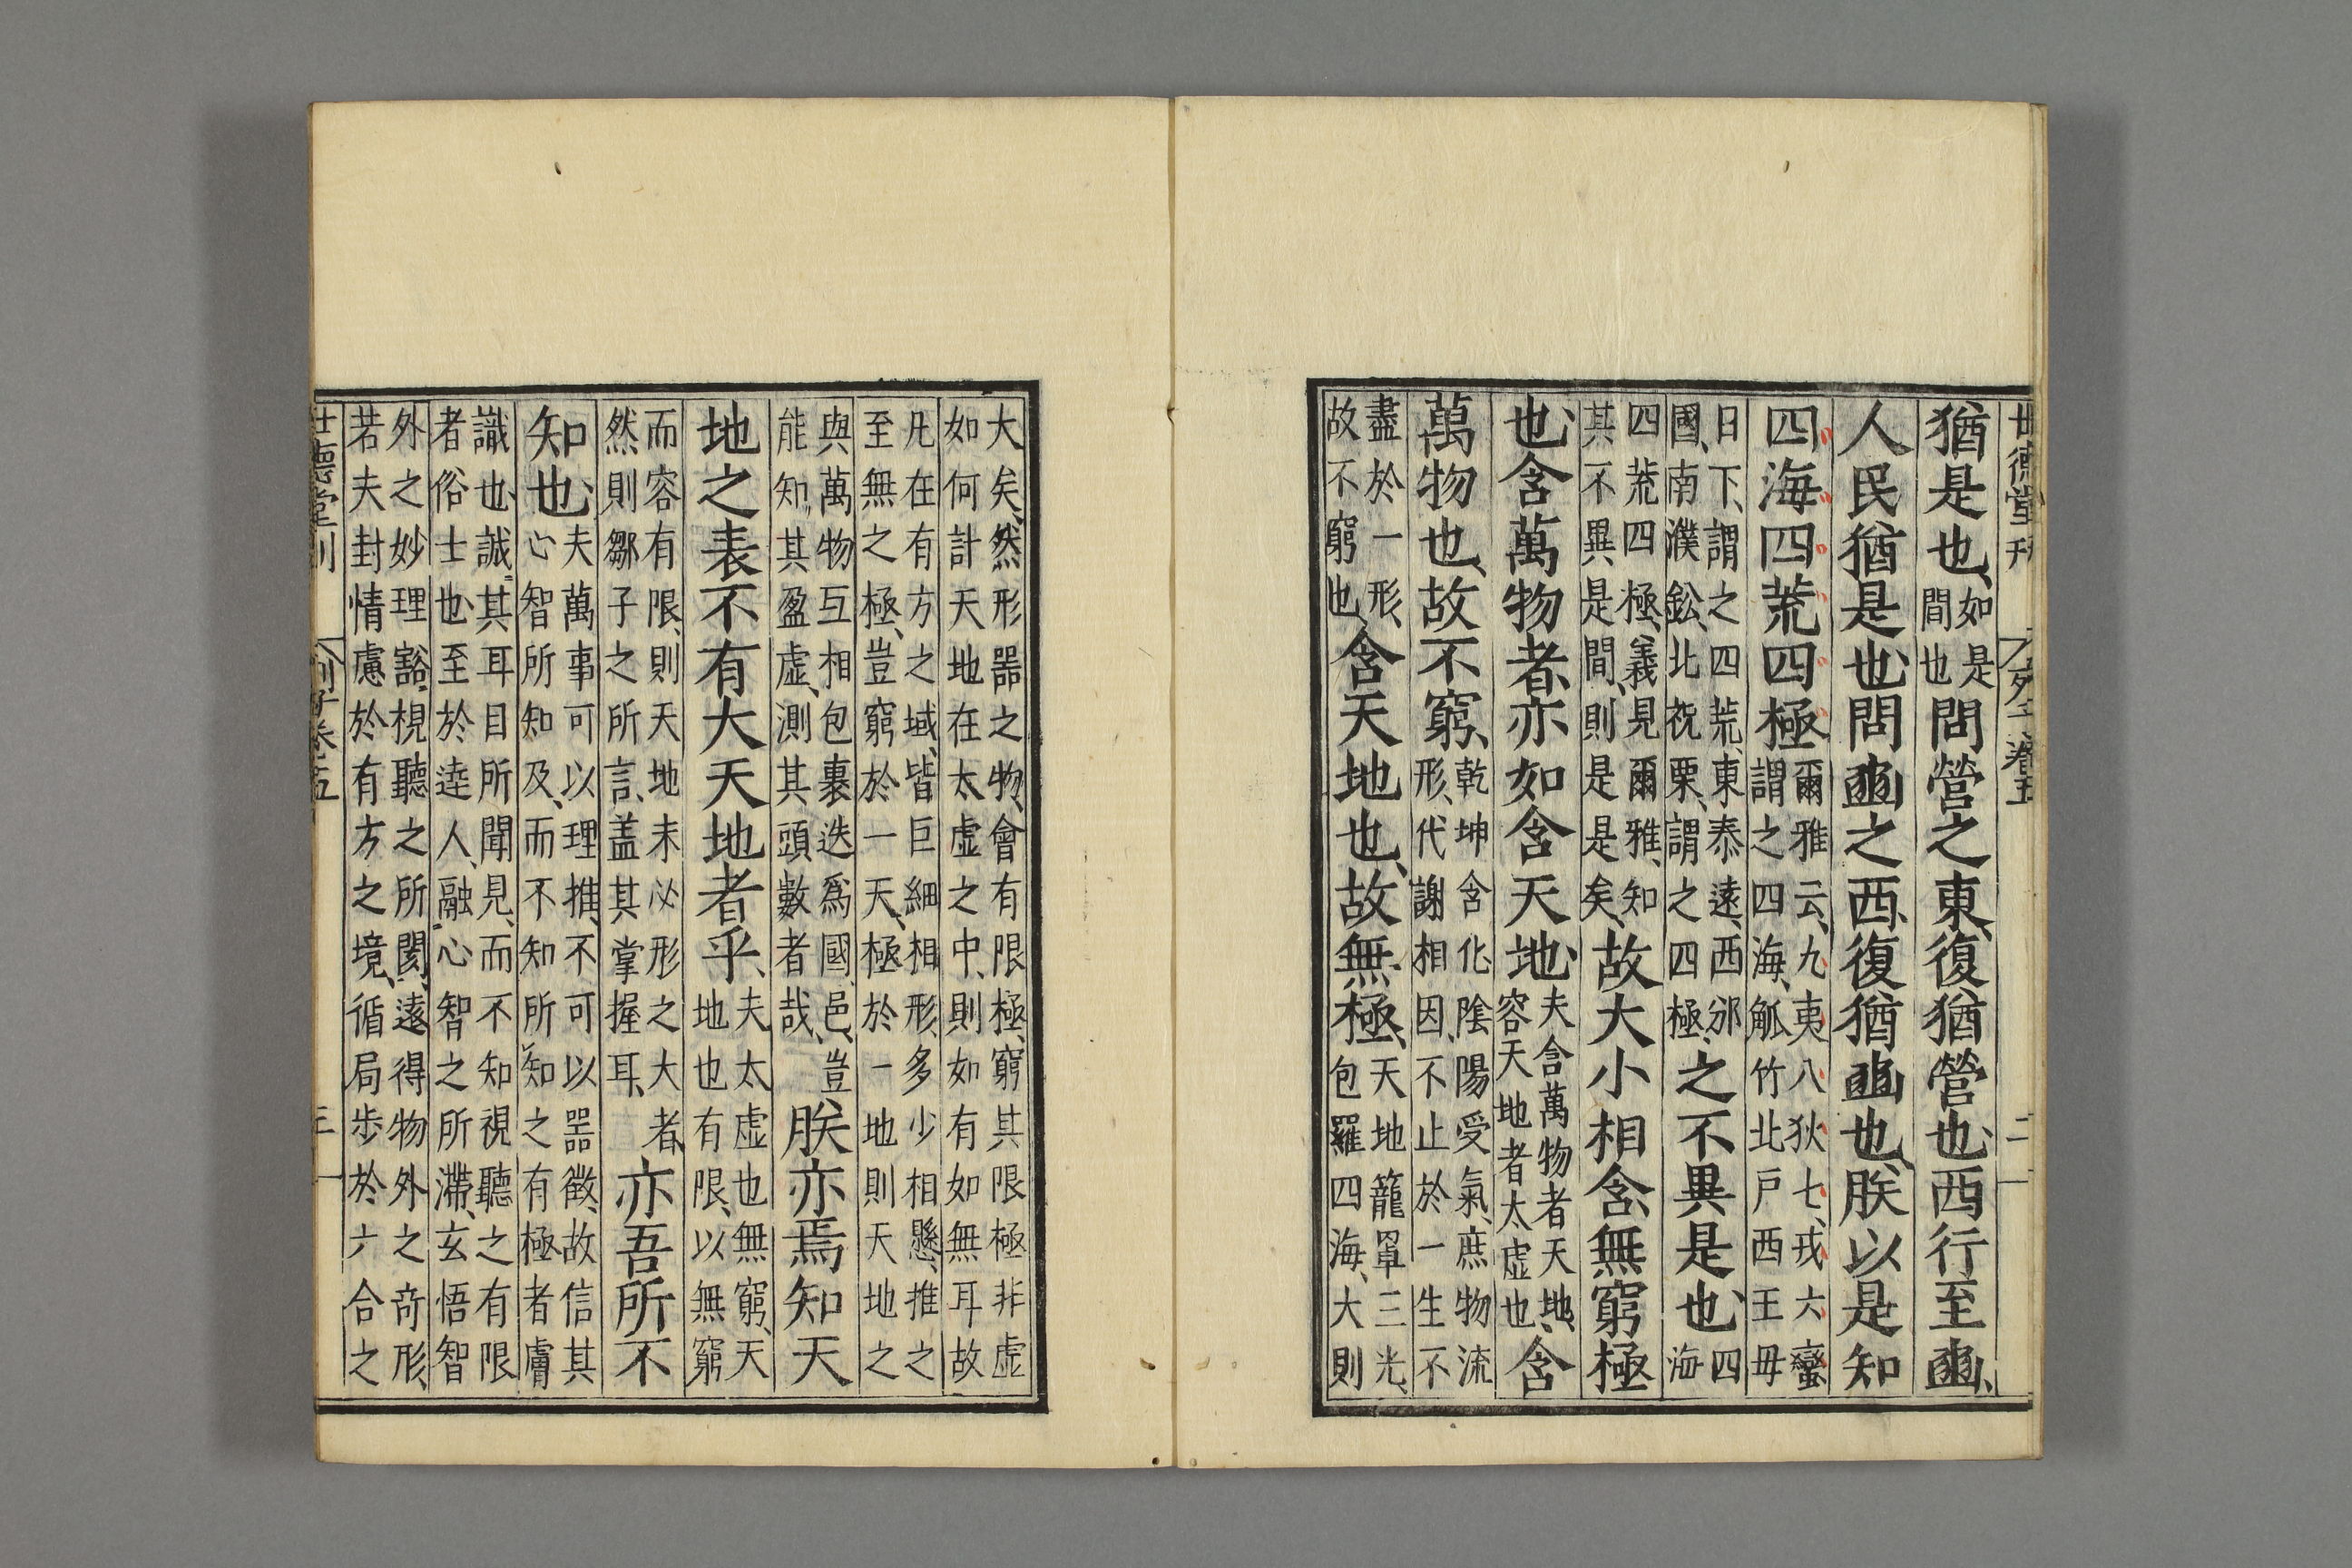 世德堂刊 列子卷五 二
猶是也、如是間也問營之東、復猶營也西行至豳、
人民猶是也問豳之西復猶豳也、朕以是知
四海四荒四極爾雅云、九夷八狄七戎六蠻謂之四海、觚竹北戸西王毋
日下、謂之四荒、東泰遠、西邠國、南濮鈆、北祝栗、謂之四極、之不異是也四海
四荒四極、義見爾雅、知其不異是間、則是是矣、故大小相含無窮極
也含萬物者亦如含天地夫含萬物者天地、容天地者太虛也含
萬物也、故不窮、乾坤含化陰陽受氣、庶物流形、代謝相因、不止於一生不
盡於一形、故不窮也、含天地也、故無極、天地籠罩三光、包羅四海、大則
大矣、然形噐之物、會有限極、窮其限極非虛如何計天地在太虛之中、則如有如無耳故
凡在有方之域、皆巨細相形、多少相懸、推之至無之極、豈窮於一天、極於一地則天地之
與萬物互相包裹迭爲國邑、豈能知其盈虛、測其頭數者哉、朕亦焉知天
地之表不有大天地者乎、夫太虛也無窮、天地也有限、以無窮
而容有限、則天地未必形之大者、然則鄒子之所言、盖其掌握耳、亦吾所不
知也夫萬事可以理推、不可以噐徵、故信其心智所知及、而不知所知之有極者膚
識也、誠其耳目所聞見、而不知視聽之有限者俗士也、至於達人、融心智之所滯、玄悟智
外之妙理、豁視聽之所閡、遠得物外之竒形、若夫封情慮於有方之境、循局步於六合之
世德堂刊 列子卷五 三